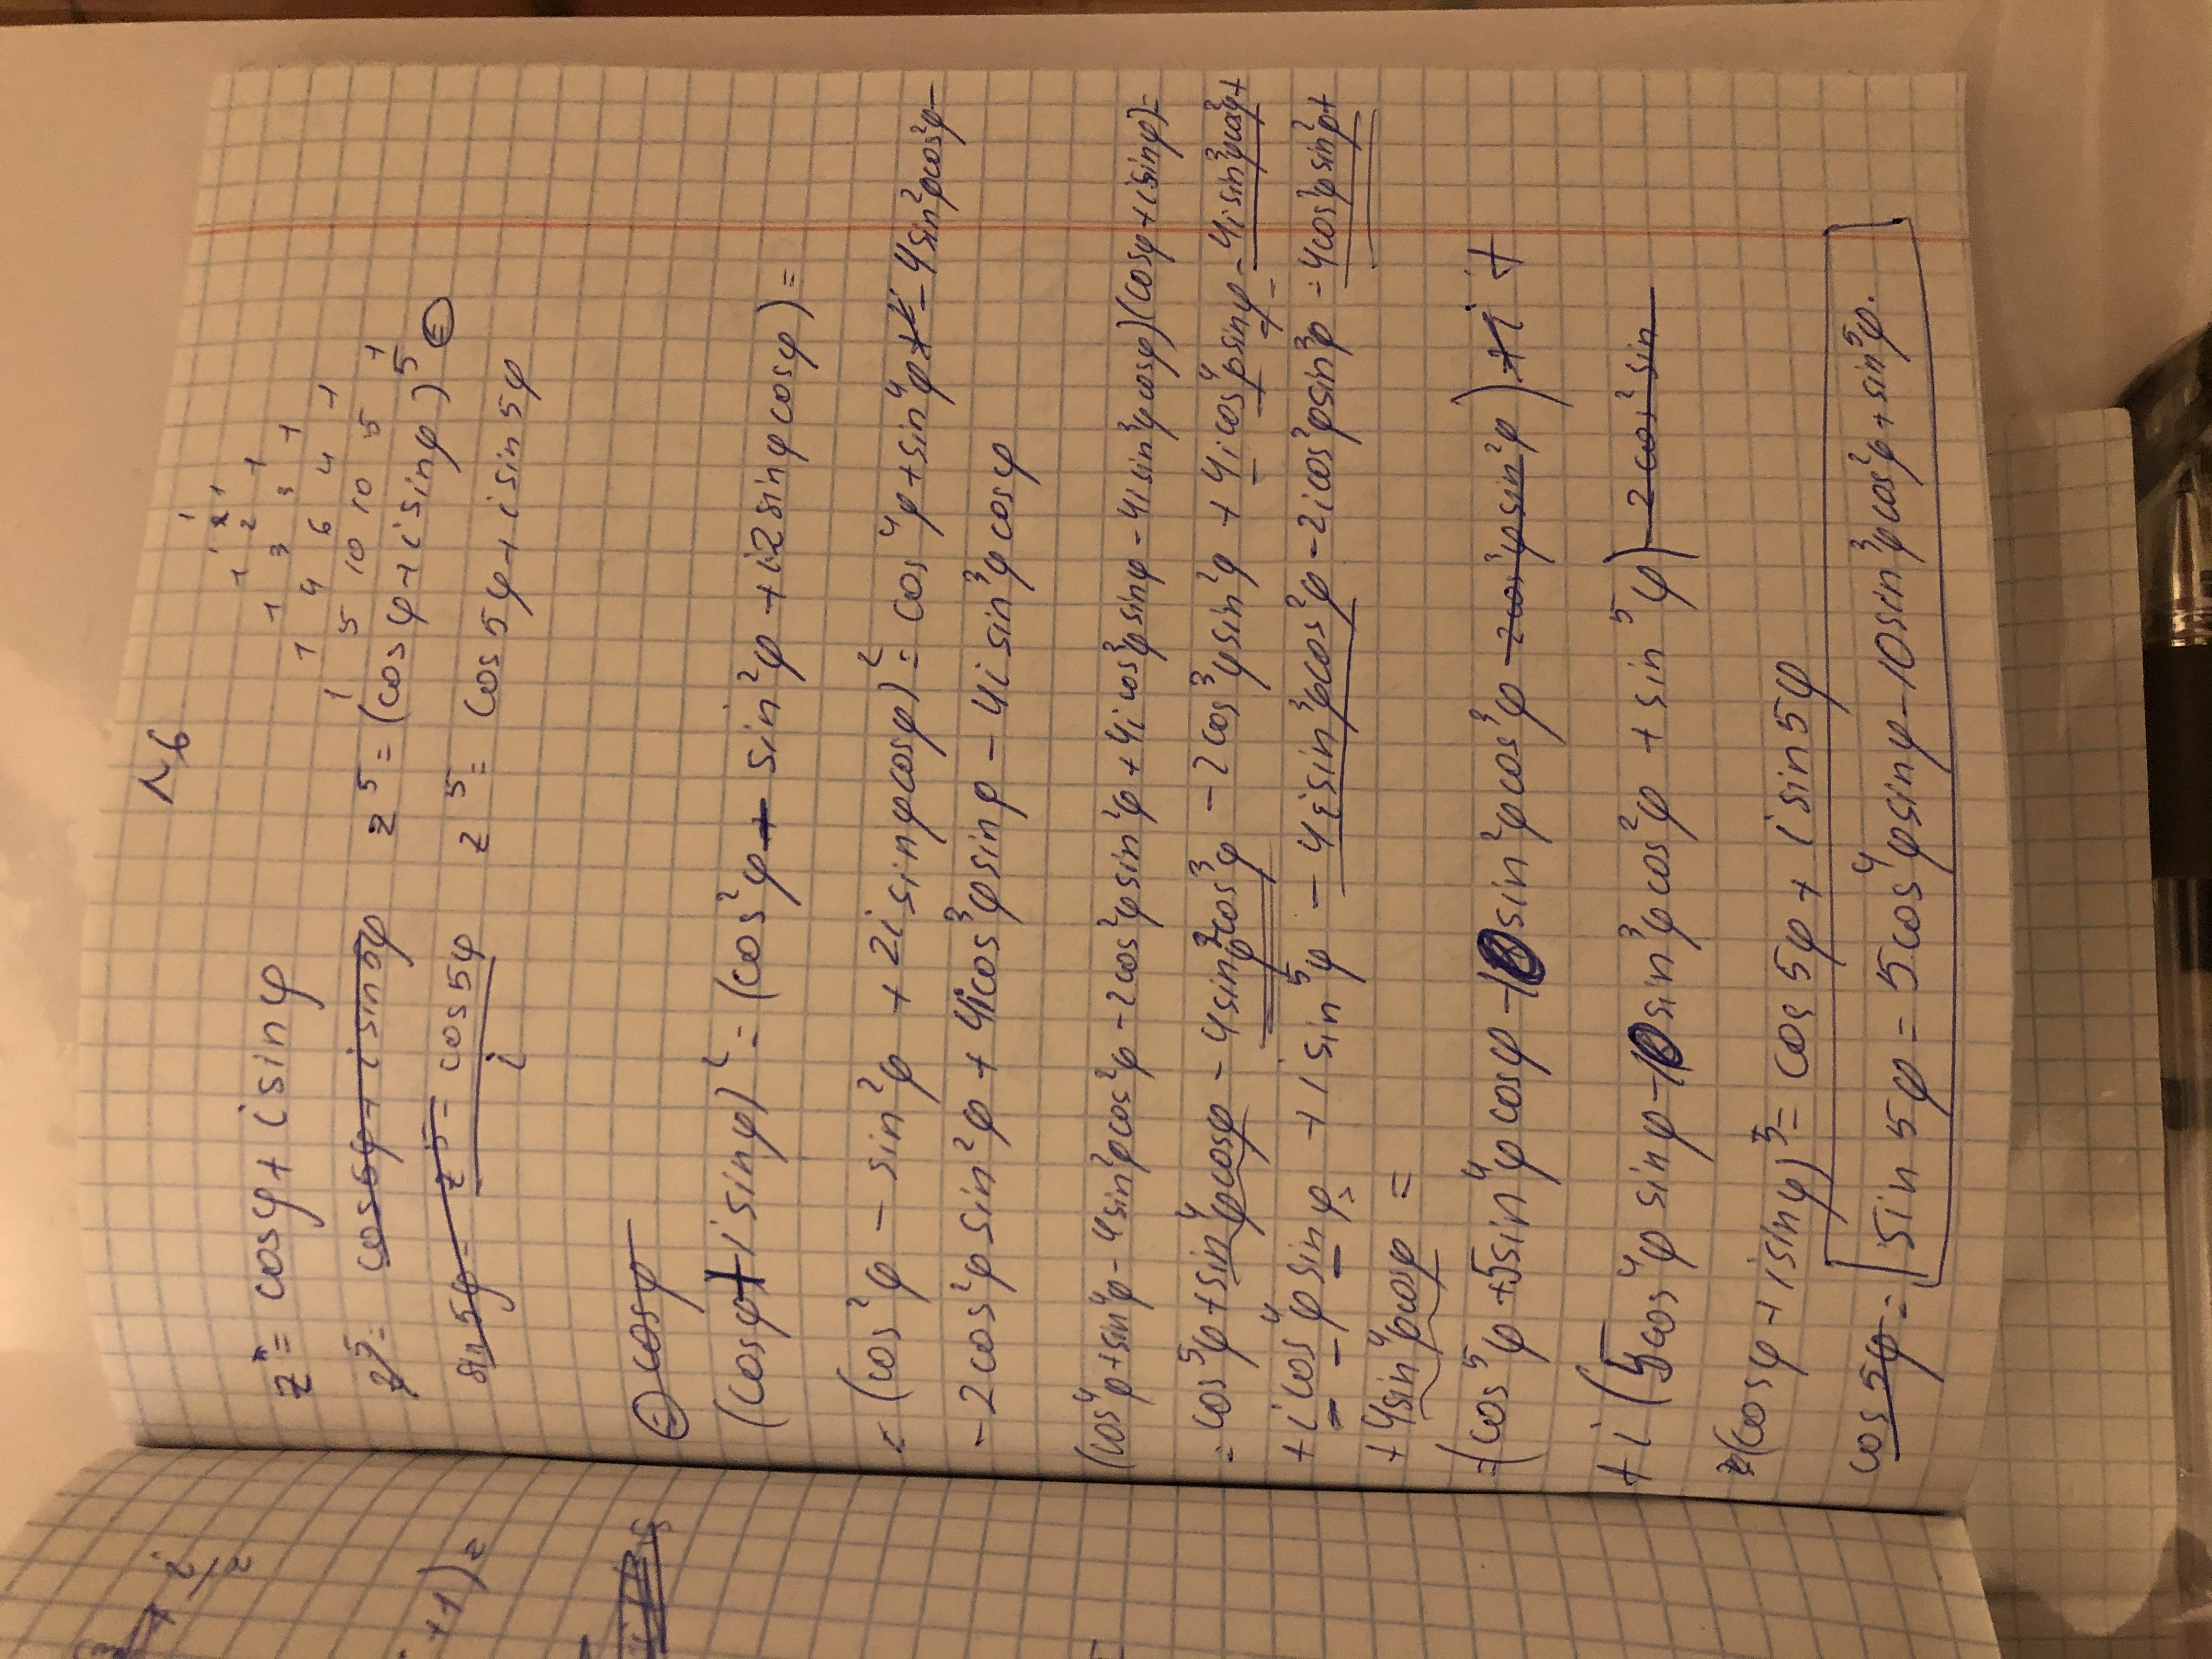 N6
1
1 2 1
1 2 1
1 3 3 1
1 4 6 4 1
1 5 10 10 5 1
z = cosφ + i sinφ
z⁵ = cos5φ + i sin5φ
z⁵ = (cosφ + i sinφ)⁵ =
sin5φ = z⁵ - cos5φ / i
z⁵ = cos5φ + i sin5φ
= cosφ
(cosφ + i sinφ)² = (cos²φ - sin²φ + i2sinφcosφ) =
= (cos²φ - sin²φ + 2i sinφcosφ)² = cos⁴φ + sin⁴φ - 4sin²φcos²φ -
- 2cos²φ sin²φ + 4icos³φsinφ - 4i sin³φcosφ
(cos⁴φ + sin⁴φ - 4sin²φcos²φ - 2cos²φsin²φ + 4i cos³φsinφ - 4i sin³φcosφ)(cosφ + i sinφ) =
= cos⁵φ + sin⁴φcosφ - 4sin²φcos³φ - 2cos³φsin²φ + 4i cos⁴φsinφ - 4i sin³φcos²φ +
+ i cos⁴φ sinφ + i sin⁵φ - 4i sin³φcos²φ - 2i cos²φsin³φ - 4cos³φsin²φ +
+ 4sin⁴φcosφ =
= (cos⁵φ + 5sin⁴φ cosφ - 10sin²φcos³φ - 2cos³φsin²φ) + i +
+ i (5cos⁴φ sinφ - 10sin³φcos²φ + sin⁵φ) - 2cos²sin
(cosφ + i sinφ)⁵ = cos5φ + i sin5φ
cos5φ = sin5φ = 5cos⁴φsinφ - 10sin³φcos²φ + sin⁵φ.